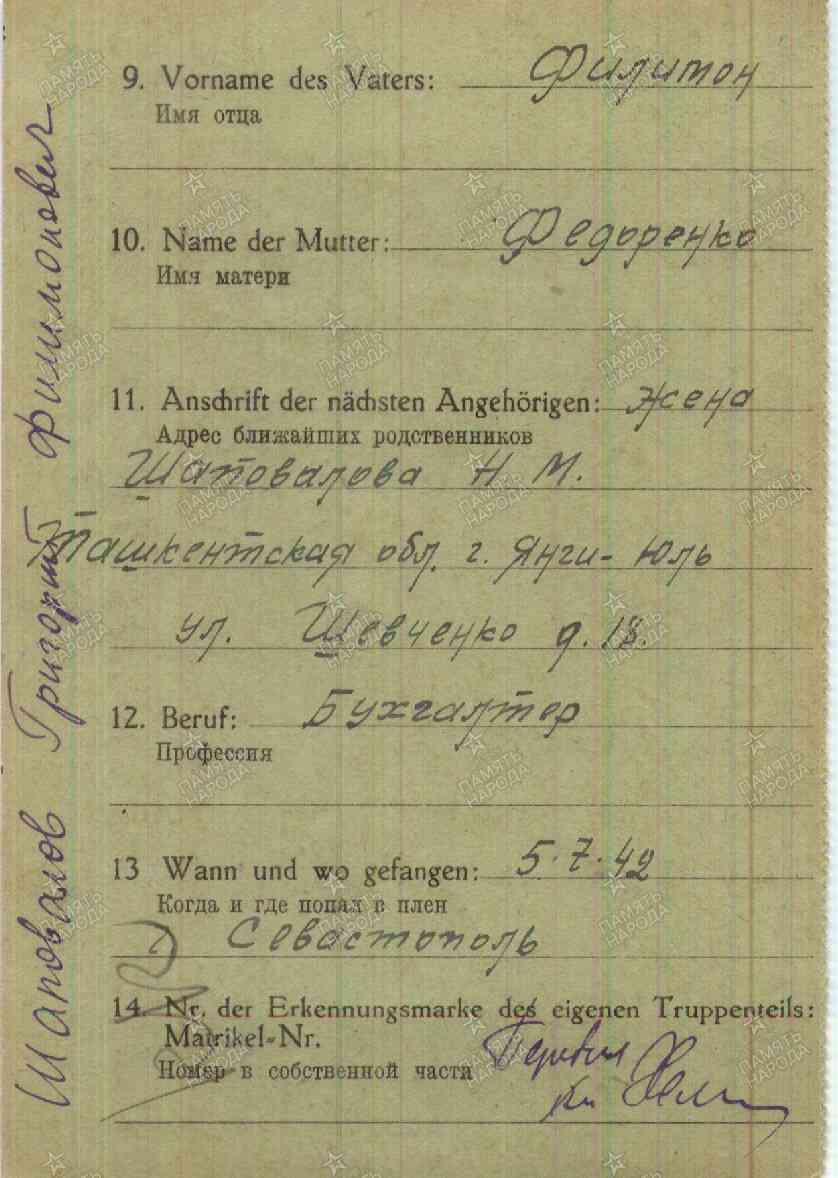 9. Vorname des Vaters: Филитон
Имя отца
10. Name der Mutter: Федоренко
Имя матери
11. Anschrift der nächsten Angehörigen: Жена
Адрес ближайших родственников
Шаповалова Н. М.
Ташкентская обл. г. Янги-Юль
ул. Шевченко д. 18.
12. Beruf: Бухгалтер
Профессия
13 Wann und wo gefangen: 5.7.42
Когда и где попал в плен
Севастополь
14. Nr. der Erkennungsmarke des eigenen Truppenteils:
Matrikel-Nr.
Номер в собственной части
Шаповалов Григорий Филимонович
ПАМЯТЬ НАРОДА